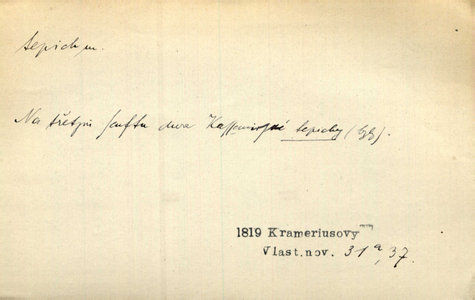 tepich m.
Na třetjm šenftu dwa Kassemirské tepichy
1819 Krameriusovy
Vlast.nov. 31a, 37.